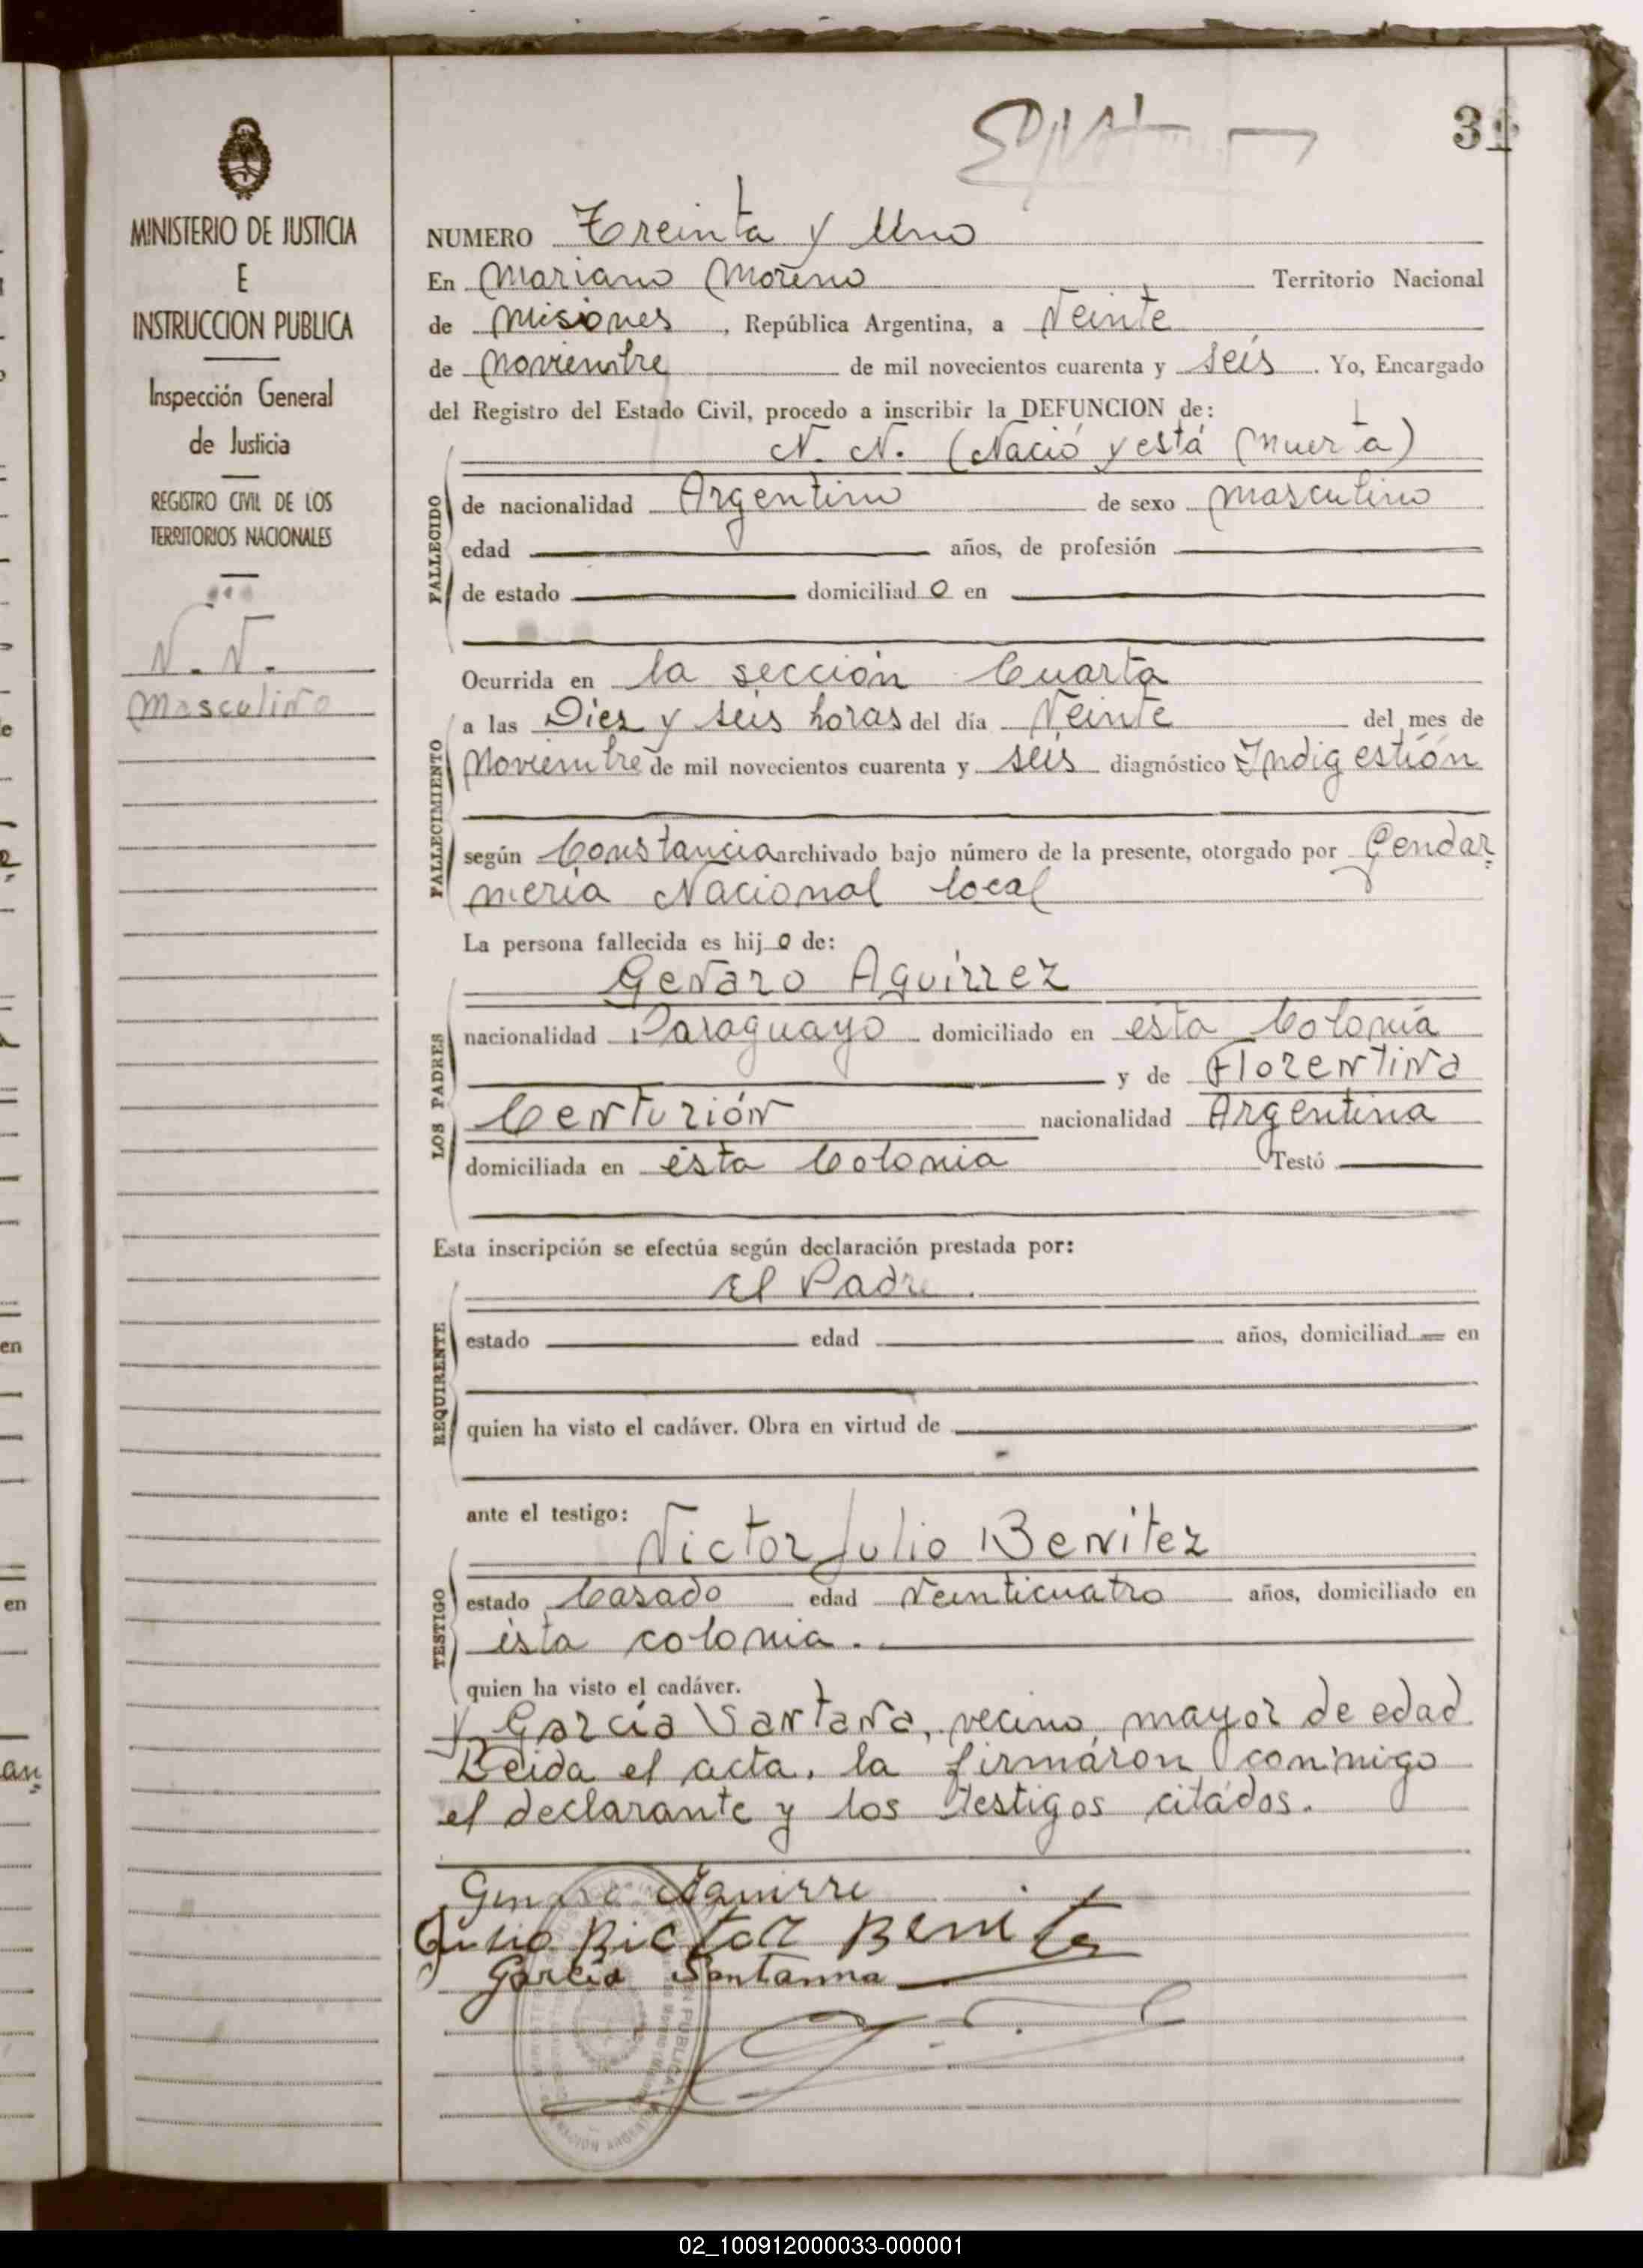 31
MINISTERIO DE JUSTICIA
E
INSTRUCCION PUBLICA
Inspección General
de Justicia
REGISTRO CIVIL DE LOS
TERRITORIOS NACIONALES
N. N.
Masculino
NUMERO Treinta y Uno
En Mariano Moreno Territorio Nacional
de Misiones, República Argentina, a Veinte
de Noviembre de mil novecientos cuarenta y seis. Yo, Encargado
del Registro del Estado Civil, procedo a inscribir la DEFUNCION de:
N. N. (Nació y está Muerta)
FALLECIDO
de nacionalidad Argentino de sexo Masculino
edad años, de profesión
de estado domiciliado en
Ocurrida en la sección Cuarta
FALLECIMIENTO
a las Diez y seis horas del día Veinte del mes de
Noviembre de mil novecientos cuarenta y seis diagnóstico Indigestión
según Constancia archivado bajo número de la presente, otorgado por Gendar-
mería Nacional local
La persona fallecida es hijo de:
LOS PADRES
Genaro Aguirrez
nacionalidad Paraguayo domiciliado en esta Colonia
y de Florentina
Centurión nacionalidad Argentina
domiciliada en ésta Colonia Testó
Esta inscripción se efectúa según declaración prestada por:
REQUIRENTE
el Padre.
estado edad años, domiciliad en
quien ha visto el cadáver. Obra en virtud de
ante el testigo:
TESTIGO
Victor Julio Benitez
estado Casado edad Veinticuatro años, domiciliado en
ésta colonia.
quien ha visto el cadáver.
y García Santana, vecino, mayor de edad
Leida el acta, la firmáron conmigo
el declarante y los testigos citádos.
Genaro Aguirre
Julio Bictor Benites
Garcia Santanna
02_100912000033-000001